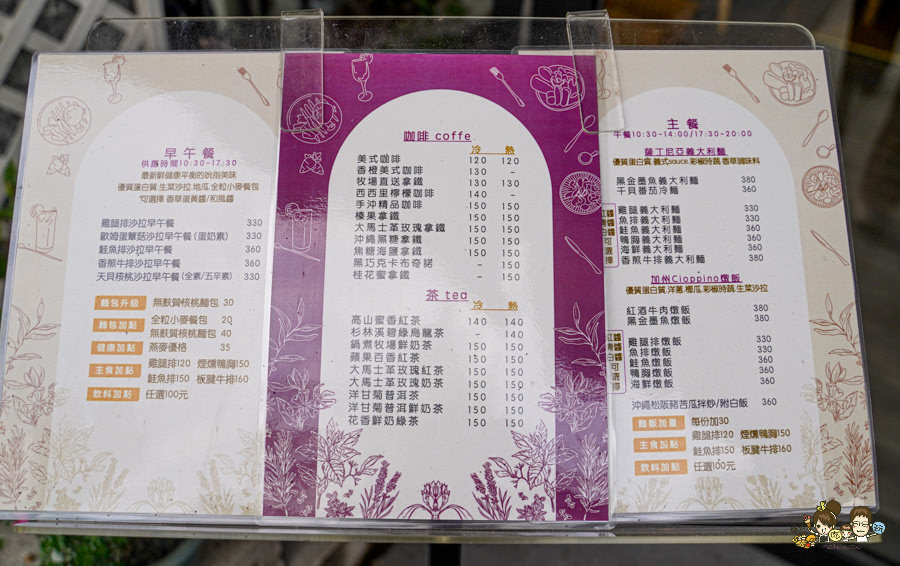 早午餐
供應時間10:30-17:30
最新鮮健康平衡的吮指美味
優質蛋白質.生菜沙拉.地瓜.全粒小麥餐包
可選擇 香草蛋黃醬/和風醬
雞腿排沙拉早午餐 330
歐姆蛋蕈菇沙拉早午餐(蛋奶素) 330
鮭魚排沙拉早午餐 360
香煎牛排沙拉早午餐 360
天貝核桃沙拉早午餐(全素/五辛素) 330
麵包升級 無麩質核桃麵包 30
麵包加點 全粒小麥餐包 20
無麩質核桃麵包 40
健康加點 燕麥優格 35
主食加點 雞腿排120 煙燻鴨胸150
鮭魚排150 板腱牛排160
飲料加點 任選100元
咖啡 coffe
冷 熱
美式咖啡 120 120
香橙美式咖啡 130 -
牧場直送拿鐵 130 130
西西里檸檬咖啡 140 -
手沖精品咖啡 150 150
榛果拿鐵 150 150
大馬士革玫瑰拿鐵 150 150
沖繩黑糖拿鐵 150 150
焦糖海鹽拿鐵 150 150
黑巧克卡布奇諾 - 150
桂花蜜拿鐵 - 150
茶 tea
冷 熱
高山蜜香紅茶 140 140
杉林溪碧綠烏龍茶 140
鍋煮牧場鮮奶茶 150 150
蘋果百香紅茶 150 150
大馬士革玫瑰紅茶 150 150
大馬士革玫瑰奶茶 150 150
洋甘菊普洱茶 150 150
洋甘菊普洱鮮奶茶 150 150
花香鮮奶綠茶 150 150
主餐
午餐10:30-14:00/17:30-20:00
薩丁尼亞義大利麵
優質蛋白質.義式sauce.彩椒時蔬.香草調味料
黑金墨魚義大利麵 380
干貝番茄冷麵 360
紅醬 青醬 白醬 可選擇
雞腿義大利麵 330
魚排義大利麵 330
鮭魚義大利麵 360
鴨胸義大利麵 360
海鮮義大利麵 360
香煎牛義大利麵 360
加州Cioppino燉飯
優質蛋白質.洋蔥.櫛瓜.彩椒時蔬.生菜沙拉
紅酒牛肉燉飯 380
黑金墨魚燉飯 380
紅醬 青醬 白醬 可選擇
雞腿排燉飯 330
魚排燉飯 330
鮭魚燉飯 360
鴨胸燉飯 360
海鮮燉飯 360
沖繩松阪豬苦瓜拌炒/附白飯 360
麵飯加量 每份加30
主食加點 雞腿排120 煙燻鴨胸150
鮭魚排150 板腱牛排160
飲料加點 任選100元